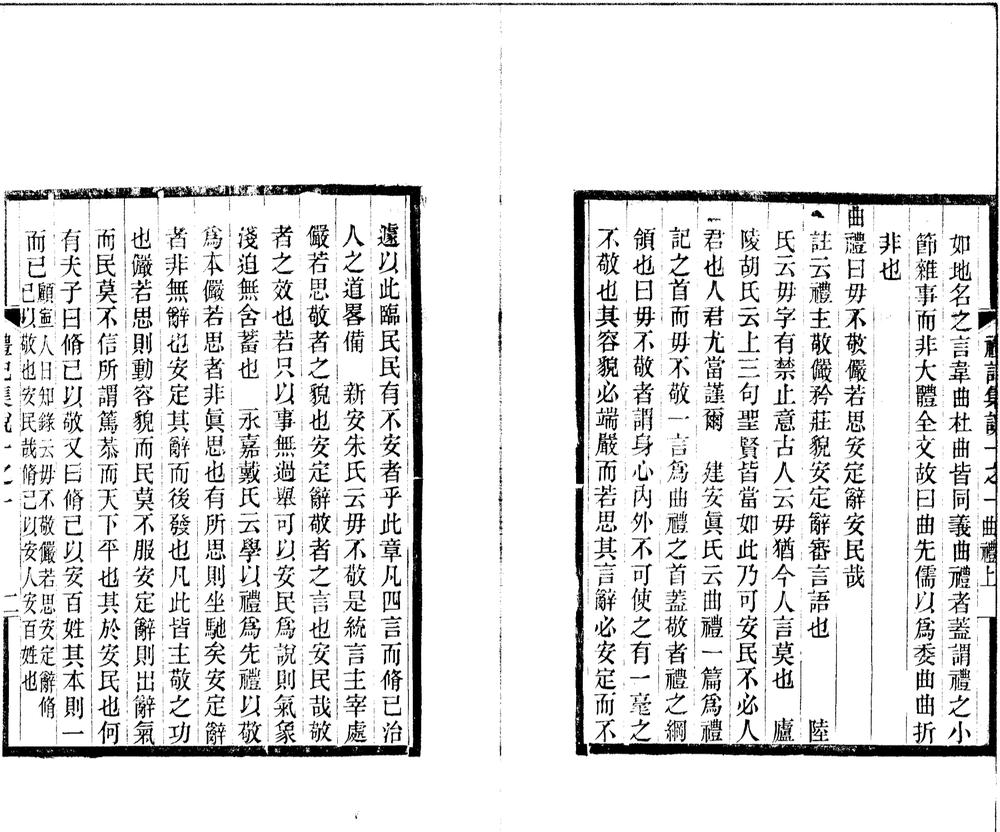 禮記集說一之一 曲禮上
如地名之言韋曲杜曲皆同義曲禮者蓋謂禮之小
節雜事而非大體全文故曰曲先儒以爲委曲曲折
非也
曲禮曰毋不敬儼若思安定辭安民哉
註云禮主敬儼矜莊貌安定辭審言語也 陸
氏云毋字有禁止意古人云毋猶今人言莫也 廬
陵胡氏云上三句聖賢皆當如此乃可安民不必人
君也人君尤當謹爾 建安眞氏云曲禮一篇爲禮
記之首而毋不敬一言爲曲禮之首蓋敬者禮之綱
領也曰毋不敬者謂身心內外不可使之有一毫之
不敬也其容貌必端嚴而若思其言辭必安定而不
遽以此臨民民有不安者乎此章凡四言而脩已治
人之道畧備 新安朱氏云毋不敬是統言主宰處
儼若思敬者之貌也安定辭敬者之言也安民哉敬
者之效也若只以事無過舉可以安民爲說則氣象
淺迫無含蓄也 永嘉戴氏云學以禮爲先禮以敬
爲本儼若思者非眞思也有所思則坐馳矣安定辭
者非無辭也安定其辭而後發也凡此皆主敬之功
也儼若思則動容貌而民莫不服安定辭則出辭氣
而民莫不信所謂篤恭而天下平也其於安民也何
有夫子曰脩已以敬又曰脩已以安百姓其本則一
而已
顧寧人日知錄云毋不敬儼若思安定辭脩
已以敬也安民哉脩已以安人安百姓也
禮記集說一之一 二